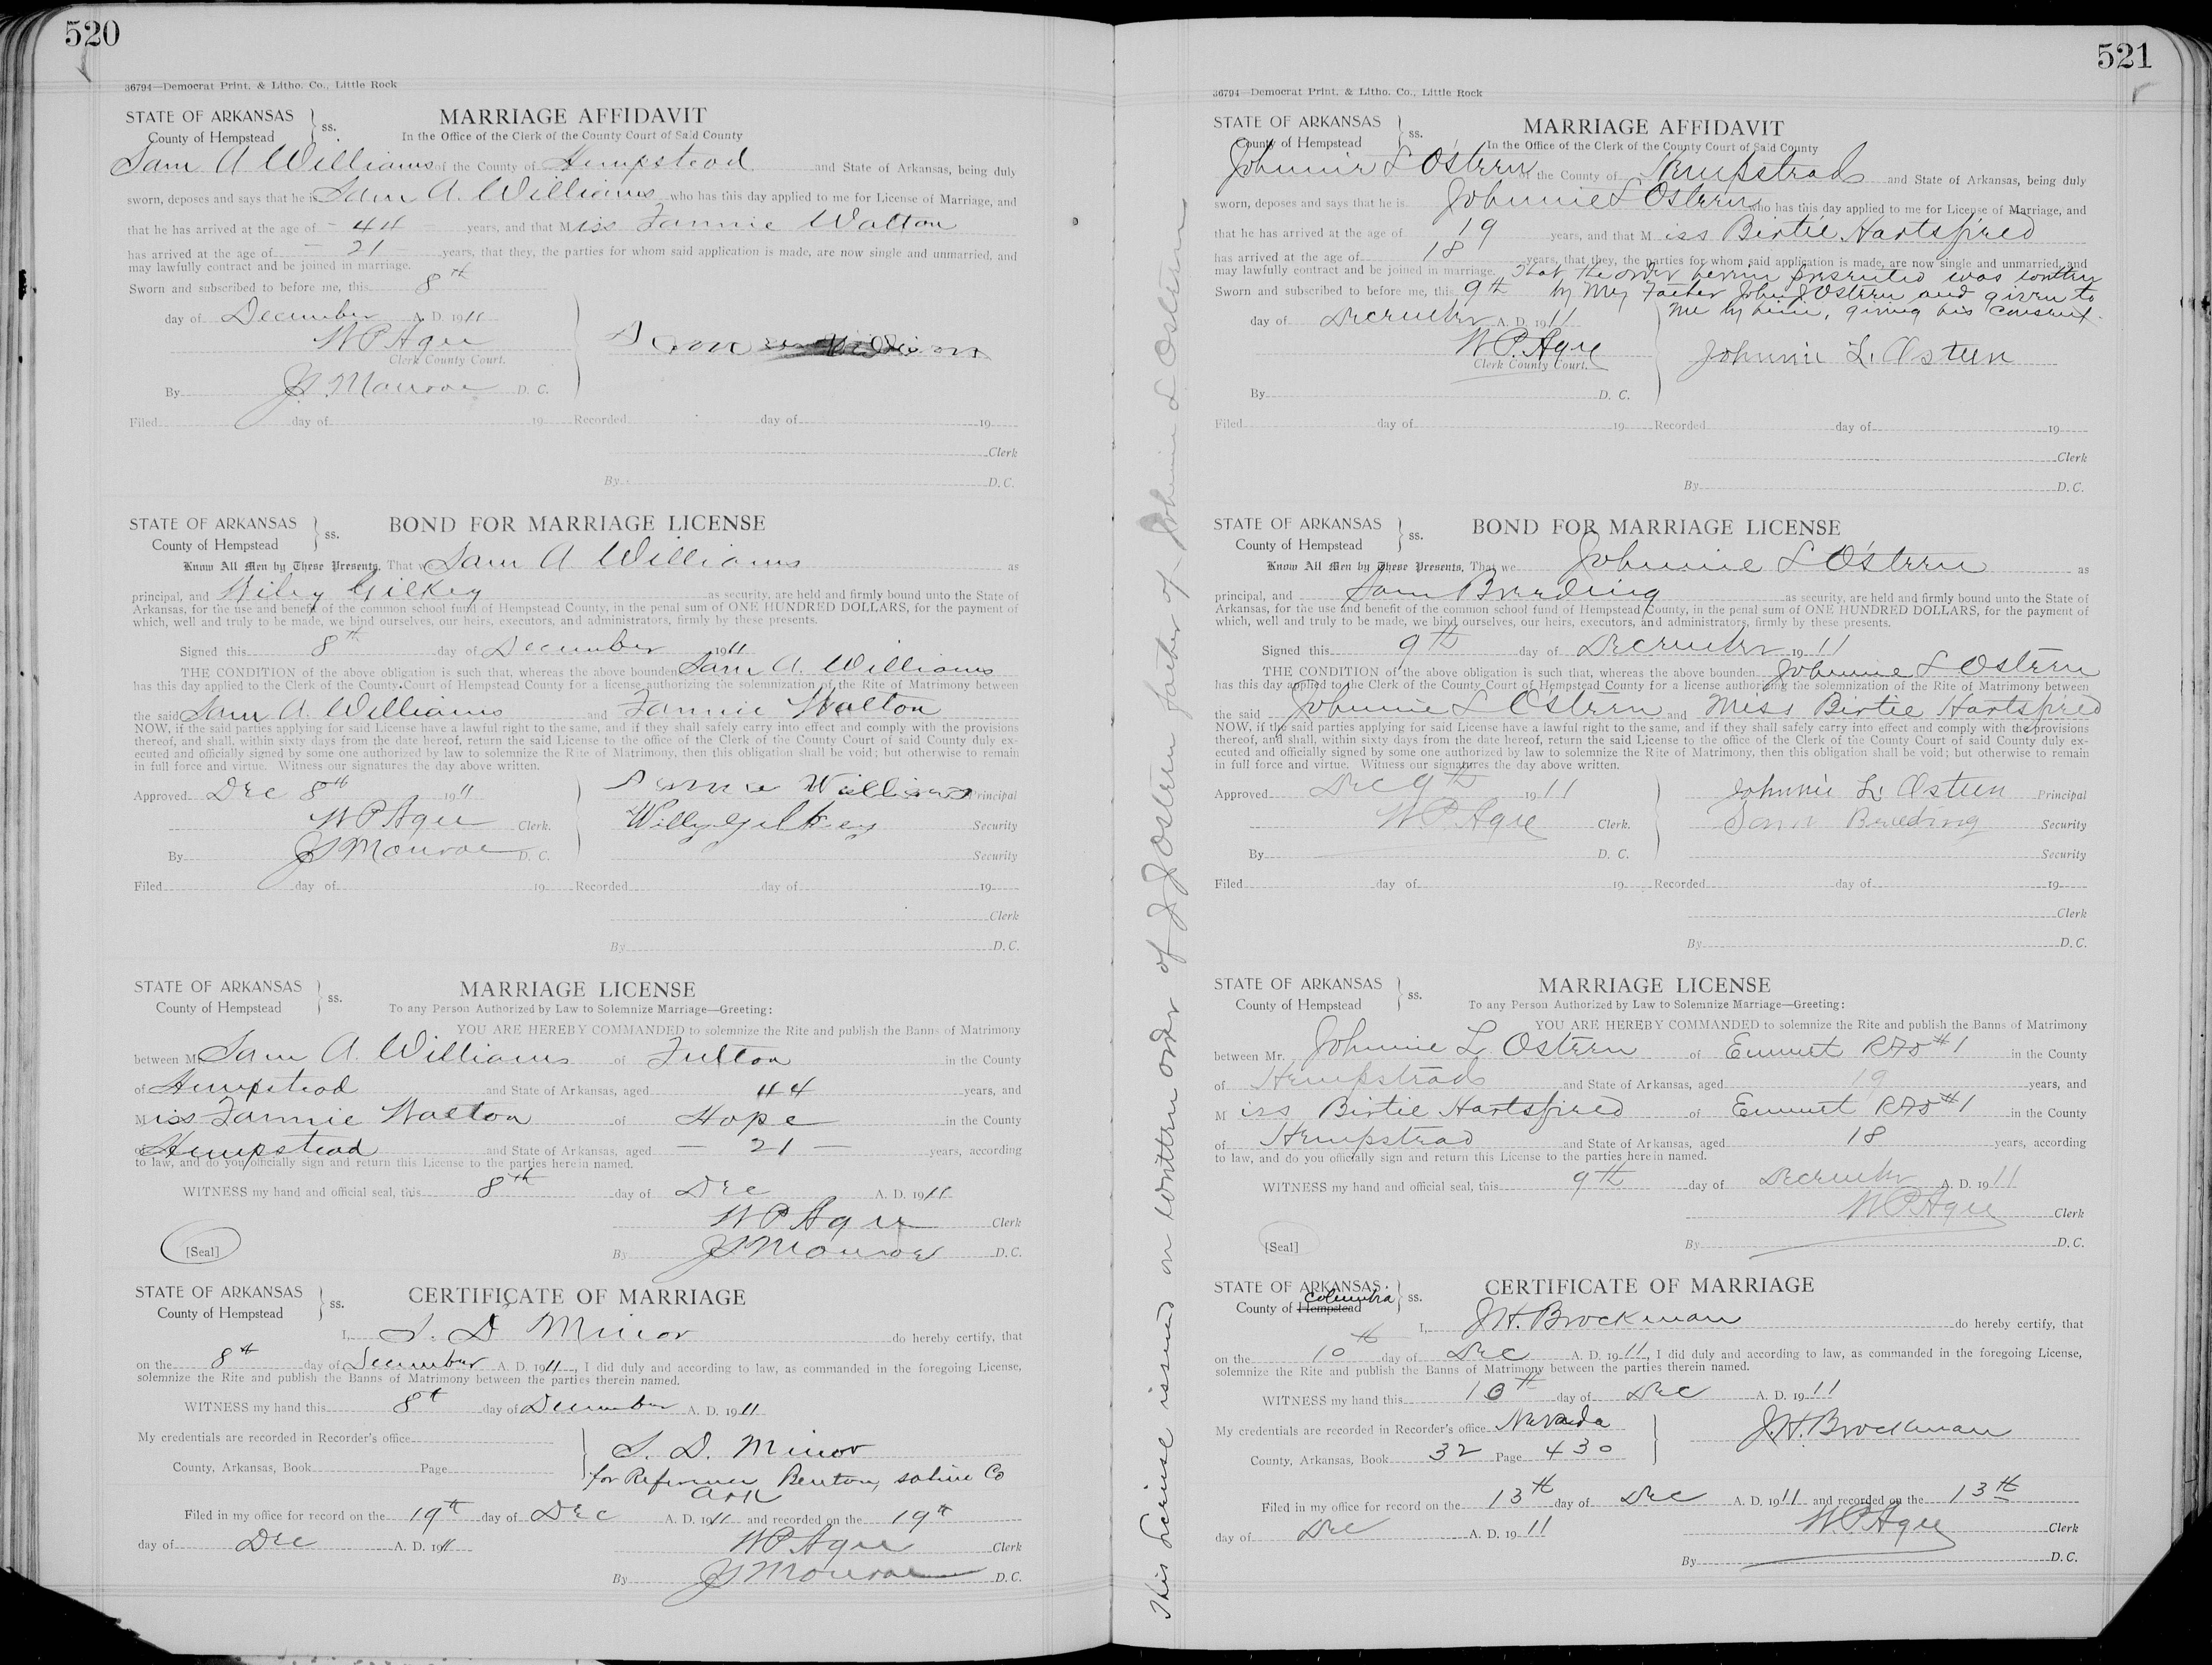 520
36794—Democrat Print. & Litho. Co., Little Rock
STATE OF ARKANSAS
County of Hempstead } ss.
MARRIAGE AFFIDAVIT
In the Office of the Clerk of the County Court of Said County
Sam A Williams of the County of Hempstead and State of Arkansas, being duly
sworn, deposes and says that he is Sam A. Williams who has this day applied to me for License of Marriage, and
that he has arrived at the age of 44 years, and that Miss Fannie Walton
has arrived at the age of 21 years, that they, the parties for whom said application is made, are now single and unmarried, and
may lawfully contract and be joined in marriage.
Sworn and subscribed to before me, this 8th
day of December A. D. 1911
W P Agee
Clerk County Court.
By J.S. Monroe D. C.
Filed day of 19 Recorded day of 19
Clerk
By D. C.
STATE OF ARKANSAS
County of Hempstead } ss.
BOND FOR MARRIAGE LICENSE
Know All Men by These Presents, That we Sam A Williams as
principal, and Wiley Gilkey as security, are held and firmly bound unto the State of
Arkansas, for the use and benefit of the common school fund of Hempstead County, in the penal sum of ONE HUNDRED DOLLARS, for the payment of
which, well and truly to be made, we bind ourselves, our heirs, executors, and administrators, firmly by these presents.
Signed this 8th day of December 1911
THE CONDITION of the above obligation is such that, whereas the above bounden Sam A. Williams
has this day applied to the Clerk of the County Court of Hempstead County for a license authorizing the solemnization of the Rite of Matrimony between
the said Sam A Williams and Fannie Walton
NOW, if the said parties applying for said License have a lawful right to the same, and if they shall safely carry into effect and comply with the provisions
thereof, and shall, within sixty days from the date hereof, return the said License to the office of the Clerk of the County Court of said County duly ex-
ecuted and officially signed by some one authorized by law to solemnize the Rite of Matrimony, then this obligation shall be void; but otherwise to remain
in full force and virtue. Witness our signatures the day above written.
Approved Dec 8th 1911 Williams Principal
W P Agee Clerk. Willy Gilkey Security
By J S Monroe D. C. Security
Filed day of 19 Recorded day of 19
Clerk
By D. C.
STATE OF ARKANSAS
County of Hempstead } ss.
MARRIAGE LICENSE
To any Person Authorized by Law to Solemnize Marriage—Greeting:
YOU ARE HEREBY COMMANDED to solemnize the Rite and publish the Banns of Matrimony
between Mr. Sam A. Williams of Fulton in the County
of Hempstead and State of Arkansas, aged 44 years, and
Miss Fannie Walton of Hope in the County
of Hempstead and State of Arkansas, aged 21 years, according
to law, and do you officially sign and return this License to the parties herein named.
WITNESS my hand and official seal, this 8th day of Dec A. D. 1911
W P Agee Clerk
[Seal] By J S Monroe D. C.
STATE OF ARKANSAS
County of Hempstead } ss.
CERTIFICATE OF MARRIAGE
I, S. D Minor do hereby certify, that
on the 8th day of December A. D. 1911, I did duly and according to law, as commanded in the foregoing License,
solemnize the Rite and publish the Banns of Matrimony between the parties therein named.
WITNESS my hand this 8th day of December A. D. 1911
My credentials are recorded in Recorder's office
S. D. Minor
County, Arkansas, Book Page
for Refernce Benton, Saline Co
Ark
Filed in my office for record on the 19th day of Dec A. D. 1911 and recorded on the 19th
day of Dec A. D. 1911 W P Agee Clerk
By J S Monroe D. C.
This License issued on written order of J J Osteen father of Johnnie L Osteen
521
36794—Democrat Print. & Litho. Co., Little Rock
STATE OF ARKANSAS
County of Hempstead } ss.
MARRIAGE AFFIDAVIT
In the Office of the Clerk of the County Court of Said County
Johnnie L Osteen of the County of Hempstead and State of Arkansas, being duly
sworn, deposes and says that he is Johnnie L Osteen who has this day applied to me for License of Marriage, and
that he has arrived at the age of 19 years, and that Miss Birtie Hartsfired
has arrived at the age of 18 years, that they, the parties for whom said application is made, are now single and unmarried, and
may lawfully contract and be joined in marriage. That the order herein presented was written
Sworn and subscribed to before me, this 9th by my Father John J Osteen and given to
me by him, giving his consent.
day of December A. D. 1911
W P. Agee
Clerk County Court. Johnnie L. Osteen
By D. C.
Filed day of 19 Recorded day of 19
Clerk
By D. C.
STATE OF ARKANSAS
County of Hempstead } ss.
BOND FOR MARRIAGE LICENSE
Know All Men by These Presents, That we Johnnie L Osteen as
principal, and Sam Breeding as security, are held and firmly bound unto the State of
Arkansas, for the use and benefit of the common school fund of Hempstead County, in the penal sum of ONE HUNDRED DOLLARS, for the payment of
which, well and truly to be made, we bind ourselves, our heirs, executors, and administrators, firmly by these presents.
Signed this 9th day of December 1911
THE CONDITION of the above obligation is such that, whereas the above bounden Johnnie L Osteen
has this day applied to the Clerk of the County Court of Hempstead County for a license authorizing the solemnization of the Rite of Matrimony between
the said Johnnie L Osteen and Miss Birtie Hartsfired
NOW, if the said parties applying for said License have a lawful right to the same, and if they shall safely carry into effect and comply with the provisions
thereof, and shall, within sixty days from the date hereof, return the said License to the office of the Clerk of the County Court of said County duly ex-
ecuted and officially signed by some one authorized by law to solemnize the Rite of Matrimony, then this obligation shall be void; but otherwise to remain
in full force and virtue. Witness our signatures the day above written.
Approved Dec 9th 1911 Johnnie L. Osteen Principal
W P. Agee Clerk. Sam Breeding Security
By D. C. Security
Filed day of 19 Recorded day of 19
Clerk
By D. C.
STATE OF ARKANSAS
County of Hempstead } ss.
MARRIAGE LICENSE
To any Person Authorized by Law to Solemnize Marriage—Greeting:
YOU ARE HEREBY COMMANDED to solemnize the Rite and publish the Banns of Matrimony
between Mr. Johnnie L. Osteen of Emmet RFD #1 in the County
of Hempstead and State of Arkansas, aged 19 years, and
Miss Birtie Hartsfired of Emmet RFD #1 in the County
of Hempstead and State of Arkansas, aged 18 years, according
to law, and do you officially sign and return this License to the parties herein named.
WITNESS my hand and official seal, this 9th day of December A. D. 1911
W P. Agee Clerk
[Seal] By D. C.
STATE OF ARKANSAS
Columbia
County of Hempstead } ss.
CERTIFICATE OF MARRIAGE
I, J. H. Brockman do hereby certify, that
on the 10th day of Dec A. D. 1911, I did duly and according to law, as commanded in the foregoing License,
solemnize the Rite and publish the Banns of Matrimony between the parties therein named.
WITNESS my hand this 10th day of Dec A. D. 1911
My credentials are recorded in Recorder's office Nevada
J. H. Brockman
County, Arkansas, Book 32 Page 430
Filed in my office for record on the 13th day of Dec A. D. 1911 and recorded on the 13th
day of Dec A. D. 1911 W P Agee Clerk
By D. C.